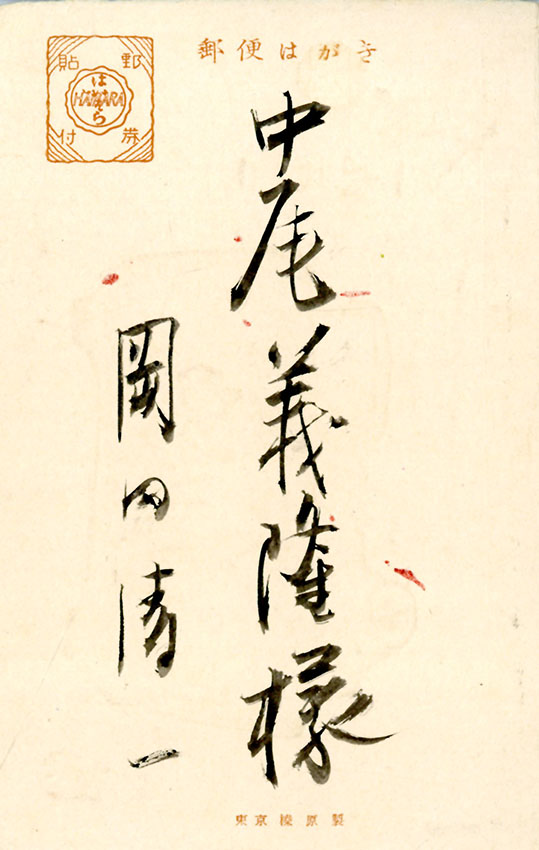 郵便はがき
郵券貼付
はいばら
HAIBARA
中尾義隆様
岡田清一
東京榛原製